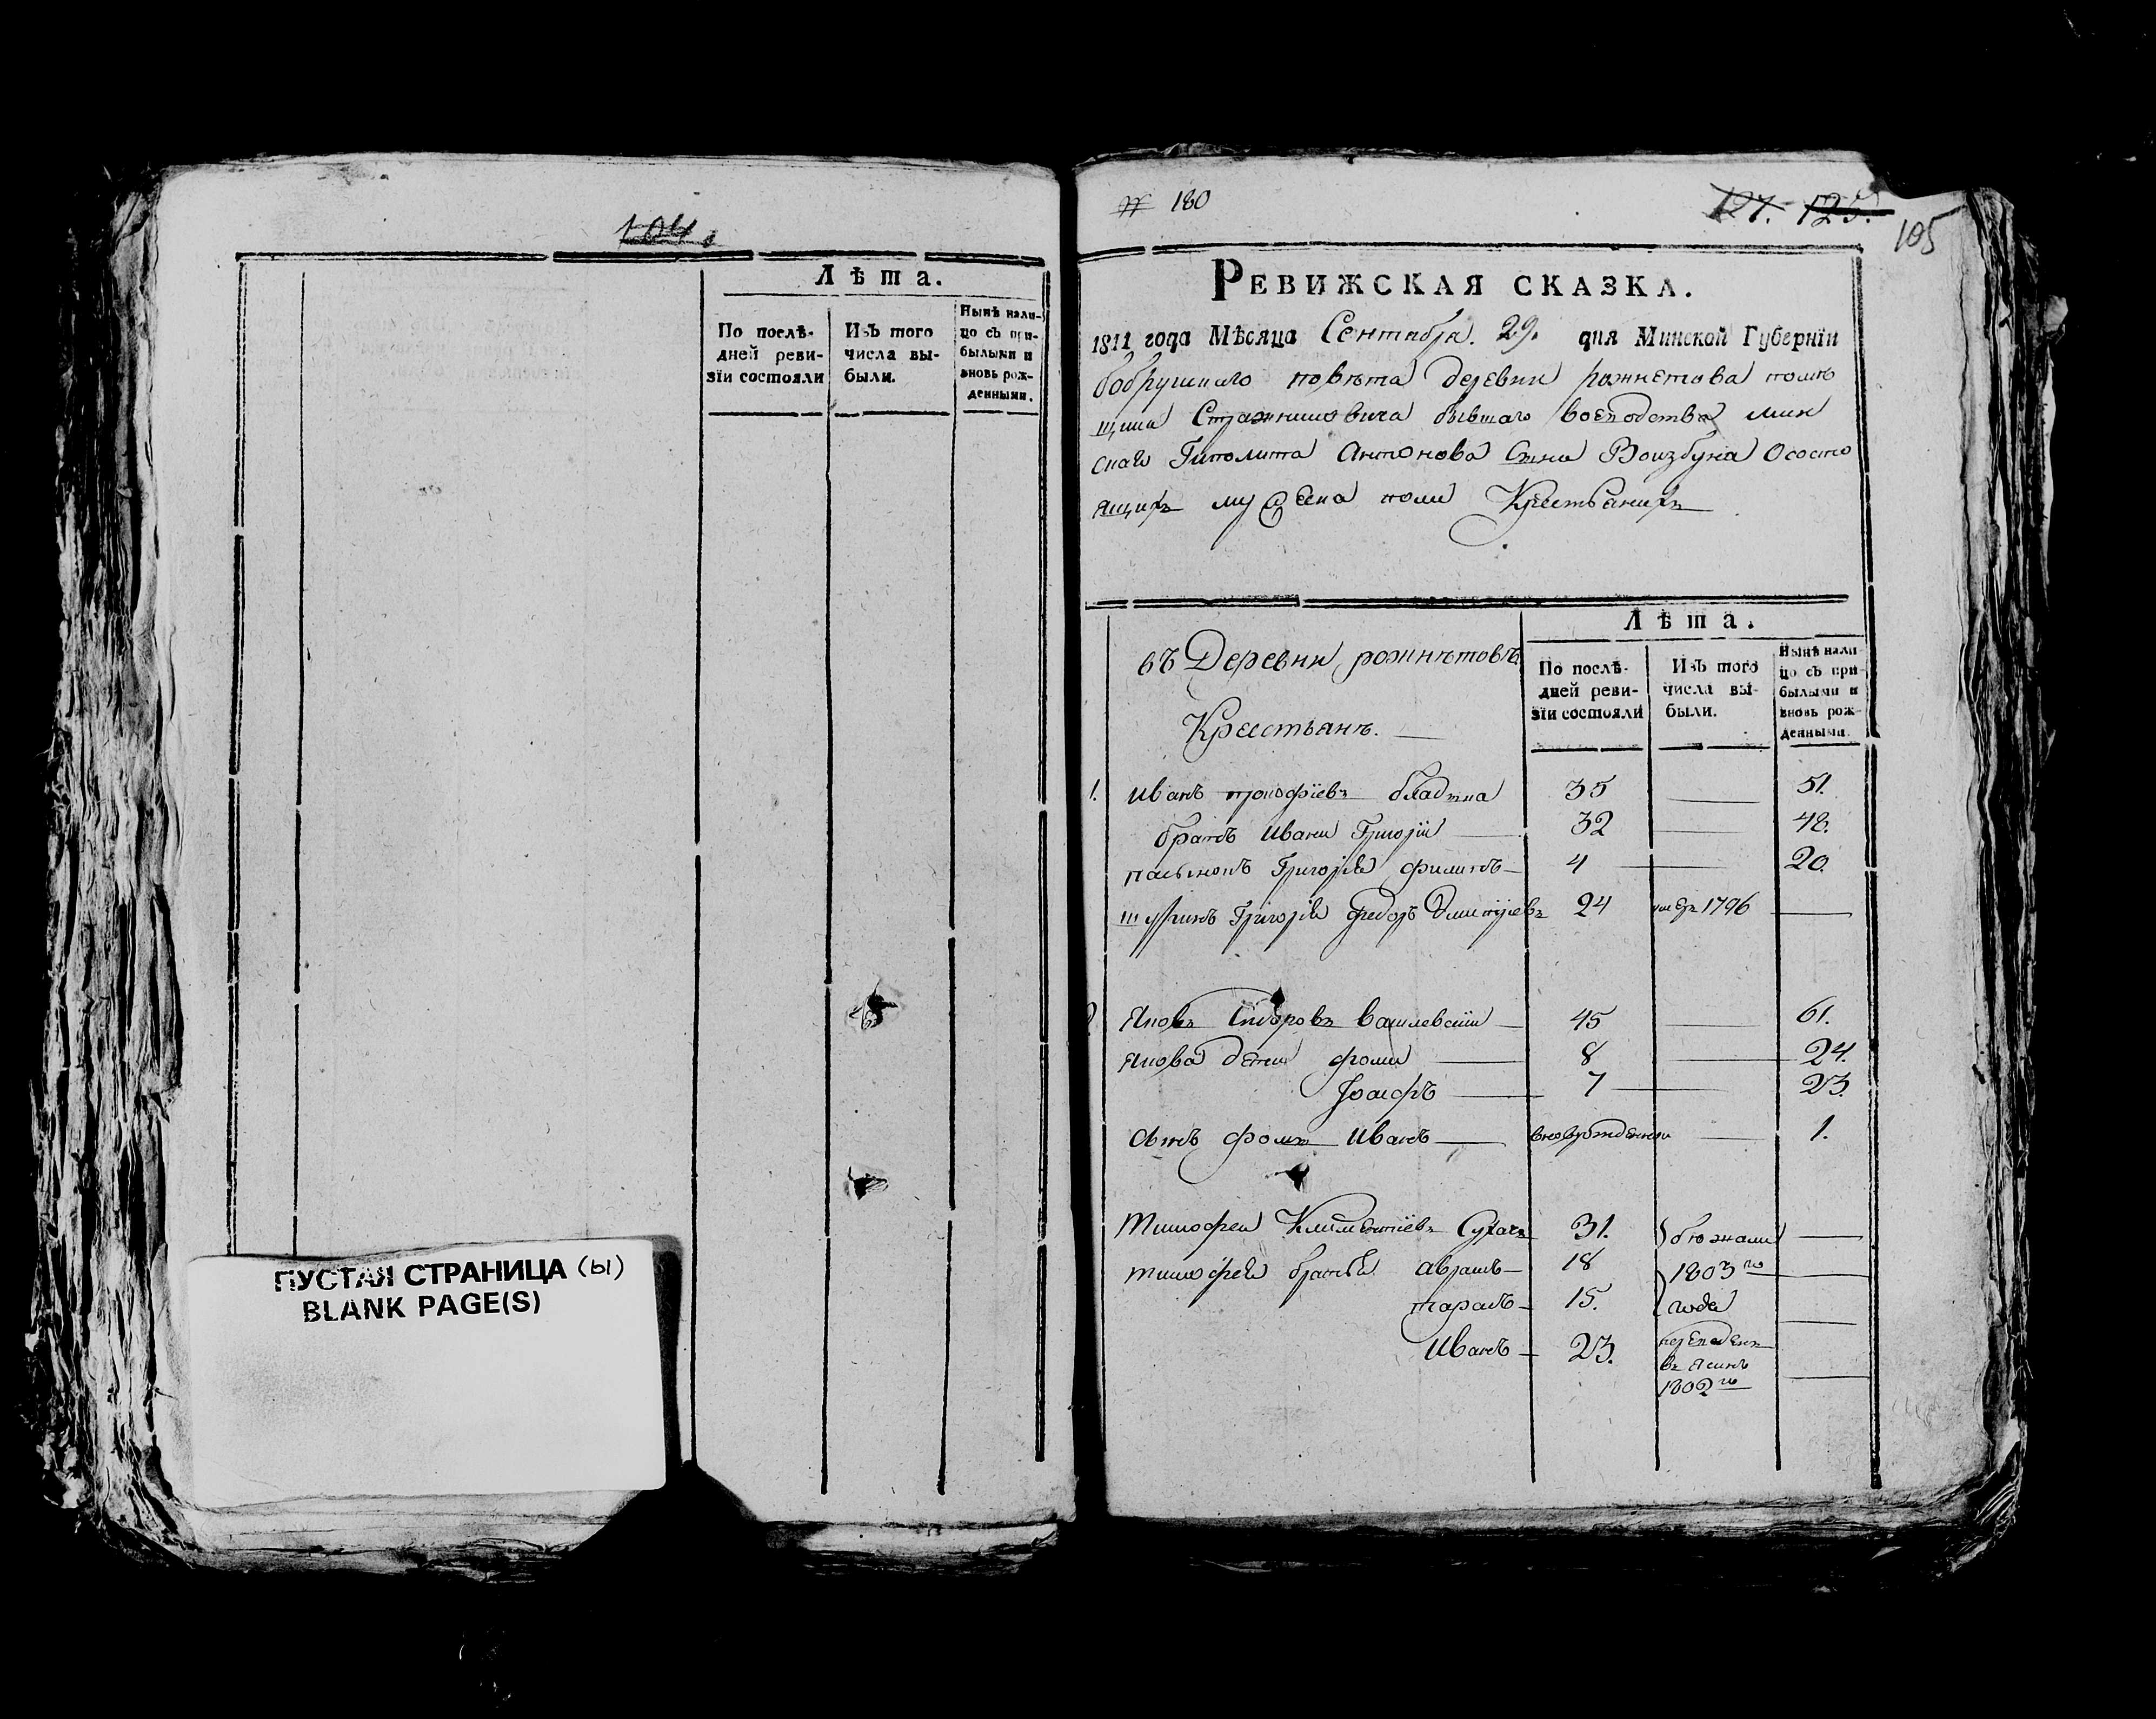 104.
Лѣта.
По послѣ-
дней реви-
зїи состояли
Изъ того
числа вы-
были.
Нынѣ нали-
цо съ при-
былыми и
вновь рож-
денными.
ПУСТАЯ СТРАНИЦА (Ы)
BLANK PAGE(S)
№ 180
127. 125.
105
РЕВИЖСКАЯ СКАЗКА.
1811 года Мѣсяца Сентабра. 29. дня Минской Губернїи
бобруцкаго повѣта деревни помѣ
щика бывшаго воеводства мин
скаго Гиполита Антонова Сына Воизбуна О состо
ящихъ мужеска полу Крестьянихъ
въ Деревни рожнѣтовѣ
Крестьянъ.
Лѣта.
По послѣ-
дней реви-
зїи состояли
Изъ того
числа вы-
были.
Нынѣ нали-
цо съ при-
былыми и
вновь рож-
денными.
1. Иванъ прокофїевъ 35 51.
братъ Ивана Григорїи 32 48.
пасынокъ Григорїя филипъ 4 20.
шуринъ Григорїя федоръ 24 умеръ 1796
Яковъ Сидоровъ Василевскїи 45 61.
Якова дети фома 8 24.
Іосифъ 7 23.
Сынъ фомы Иванъ вновърожденни 1.
Тимофеи Климентїевъ Сухачъ 31. бѣжали
тимофея братья аврамъ 18 1803го
тарасъ 15. года
Иванъ 23. переведенъ
1802го